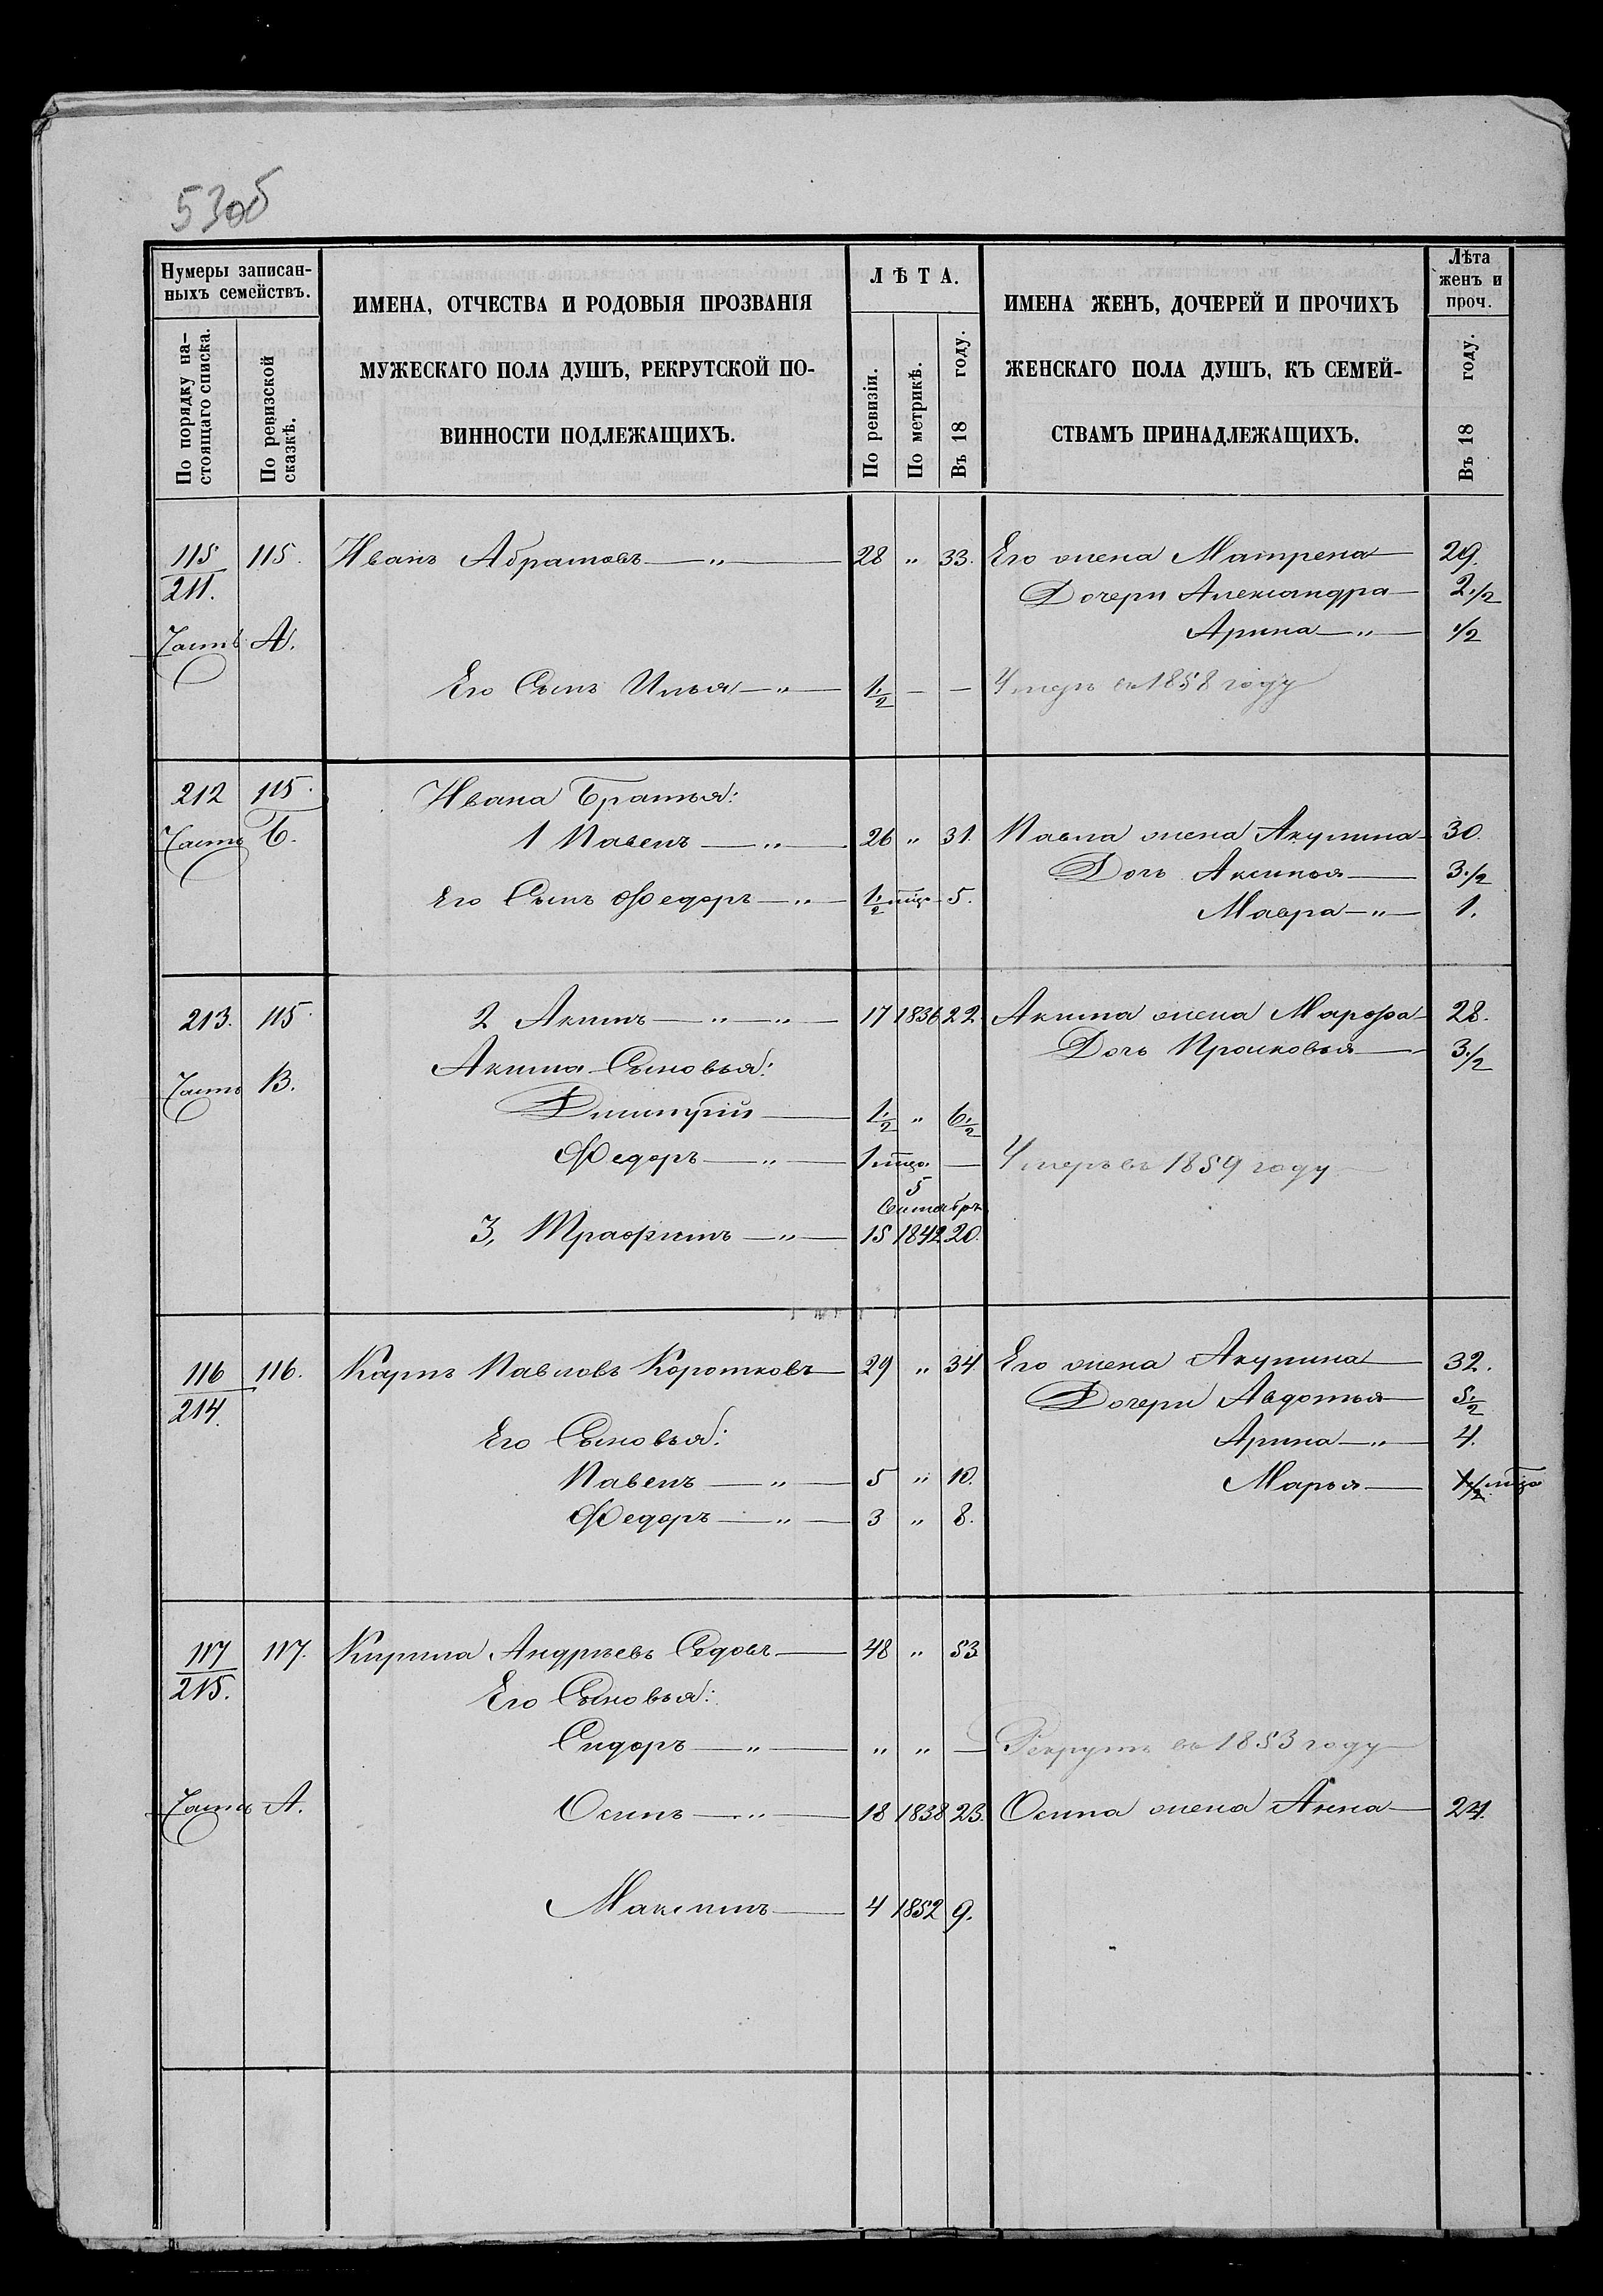 530б
Нумеры записан-
ныхъ семействъ.
По порядку на-
стоящаго списка.
По ревизской
сказкѣ.
ИМЕНА, ОТЧЕСТВА И РОДОВЫЯ ПРОЗВАНІЯ
МУЖЕСКАГО ПОЛА ДУШЪ, РЕКРУТСКОЙ ПО-
ВИННОСТИ ПОДЛЕЖАЩИХЪ.
ЛѢТА.
По ревизіи.
По метрикѣ.
Въ 18 году.
ИМЕНА ЖЕНЪ, ДОЧЕРЕЙ И ПРОЧИХЪ
ЖЕНСКАГО ПОЛА ДУШЪ, КЪ СЕМЕЙ-
СТВАМЪ ПРИНАДЛЕЖАЩИХЪ.
Лѣта
женъ и
проч.
Въ 18 году.
115 115. Иванъ Абрамовъ — " — 28 " 33. Его жена Матрена — 29.
211. Дочери Александра — 2 1/2
Часть А. Арина — " — 1/2
Его Сынъ Илья — " — 1 1/2 — — Умеръ въ 1858 году
212 115. Ивана Братья:
Часть Б. 1 Павелъ — " — 26 " 31. Павла жена Акулина — 30.
Дочь Аксинья — 3 1/2
Его Сынъ Федоръ — " — 1 1/2 мца — 5. Мавра — " — 1.
213. 115. 2 Акимъ — " — " — 17 1836 22. Акима жена Марфа — 28.
Дочь Прасковья — 3 1/2
Часть В. Акима Сыновья:
Димитрій — 1 1/2 " 6 1/2
Федоръ — " — 1 мца. — Умеръ въ 1859 году —
5
Сентября
3, Трафимъ — " — 15 1842 20.
116 116. Карпъ Павловъ Коротковъ — 29 " 34 Его жена Акулина — 32.
214. Дочери Авдотья — 5 1/2
Его Сыновья: Арина — " — 4.
Павелъ — " — 5 " 10. Марья — 1 1/2 мца
Федоръ — " — 3 " 8.
117 117. Кирила Андрѣевъ Седовъ — 48 " 53
215. Его Сыновья:
Сидоръ — " — " " — Рекрутъ въ 1853 году
Часть А. Осипъ — " — 18 1838 23. Осипа жена Анна — 24.
Максимъ — 4 1852 9.